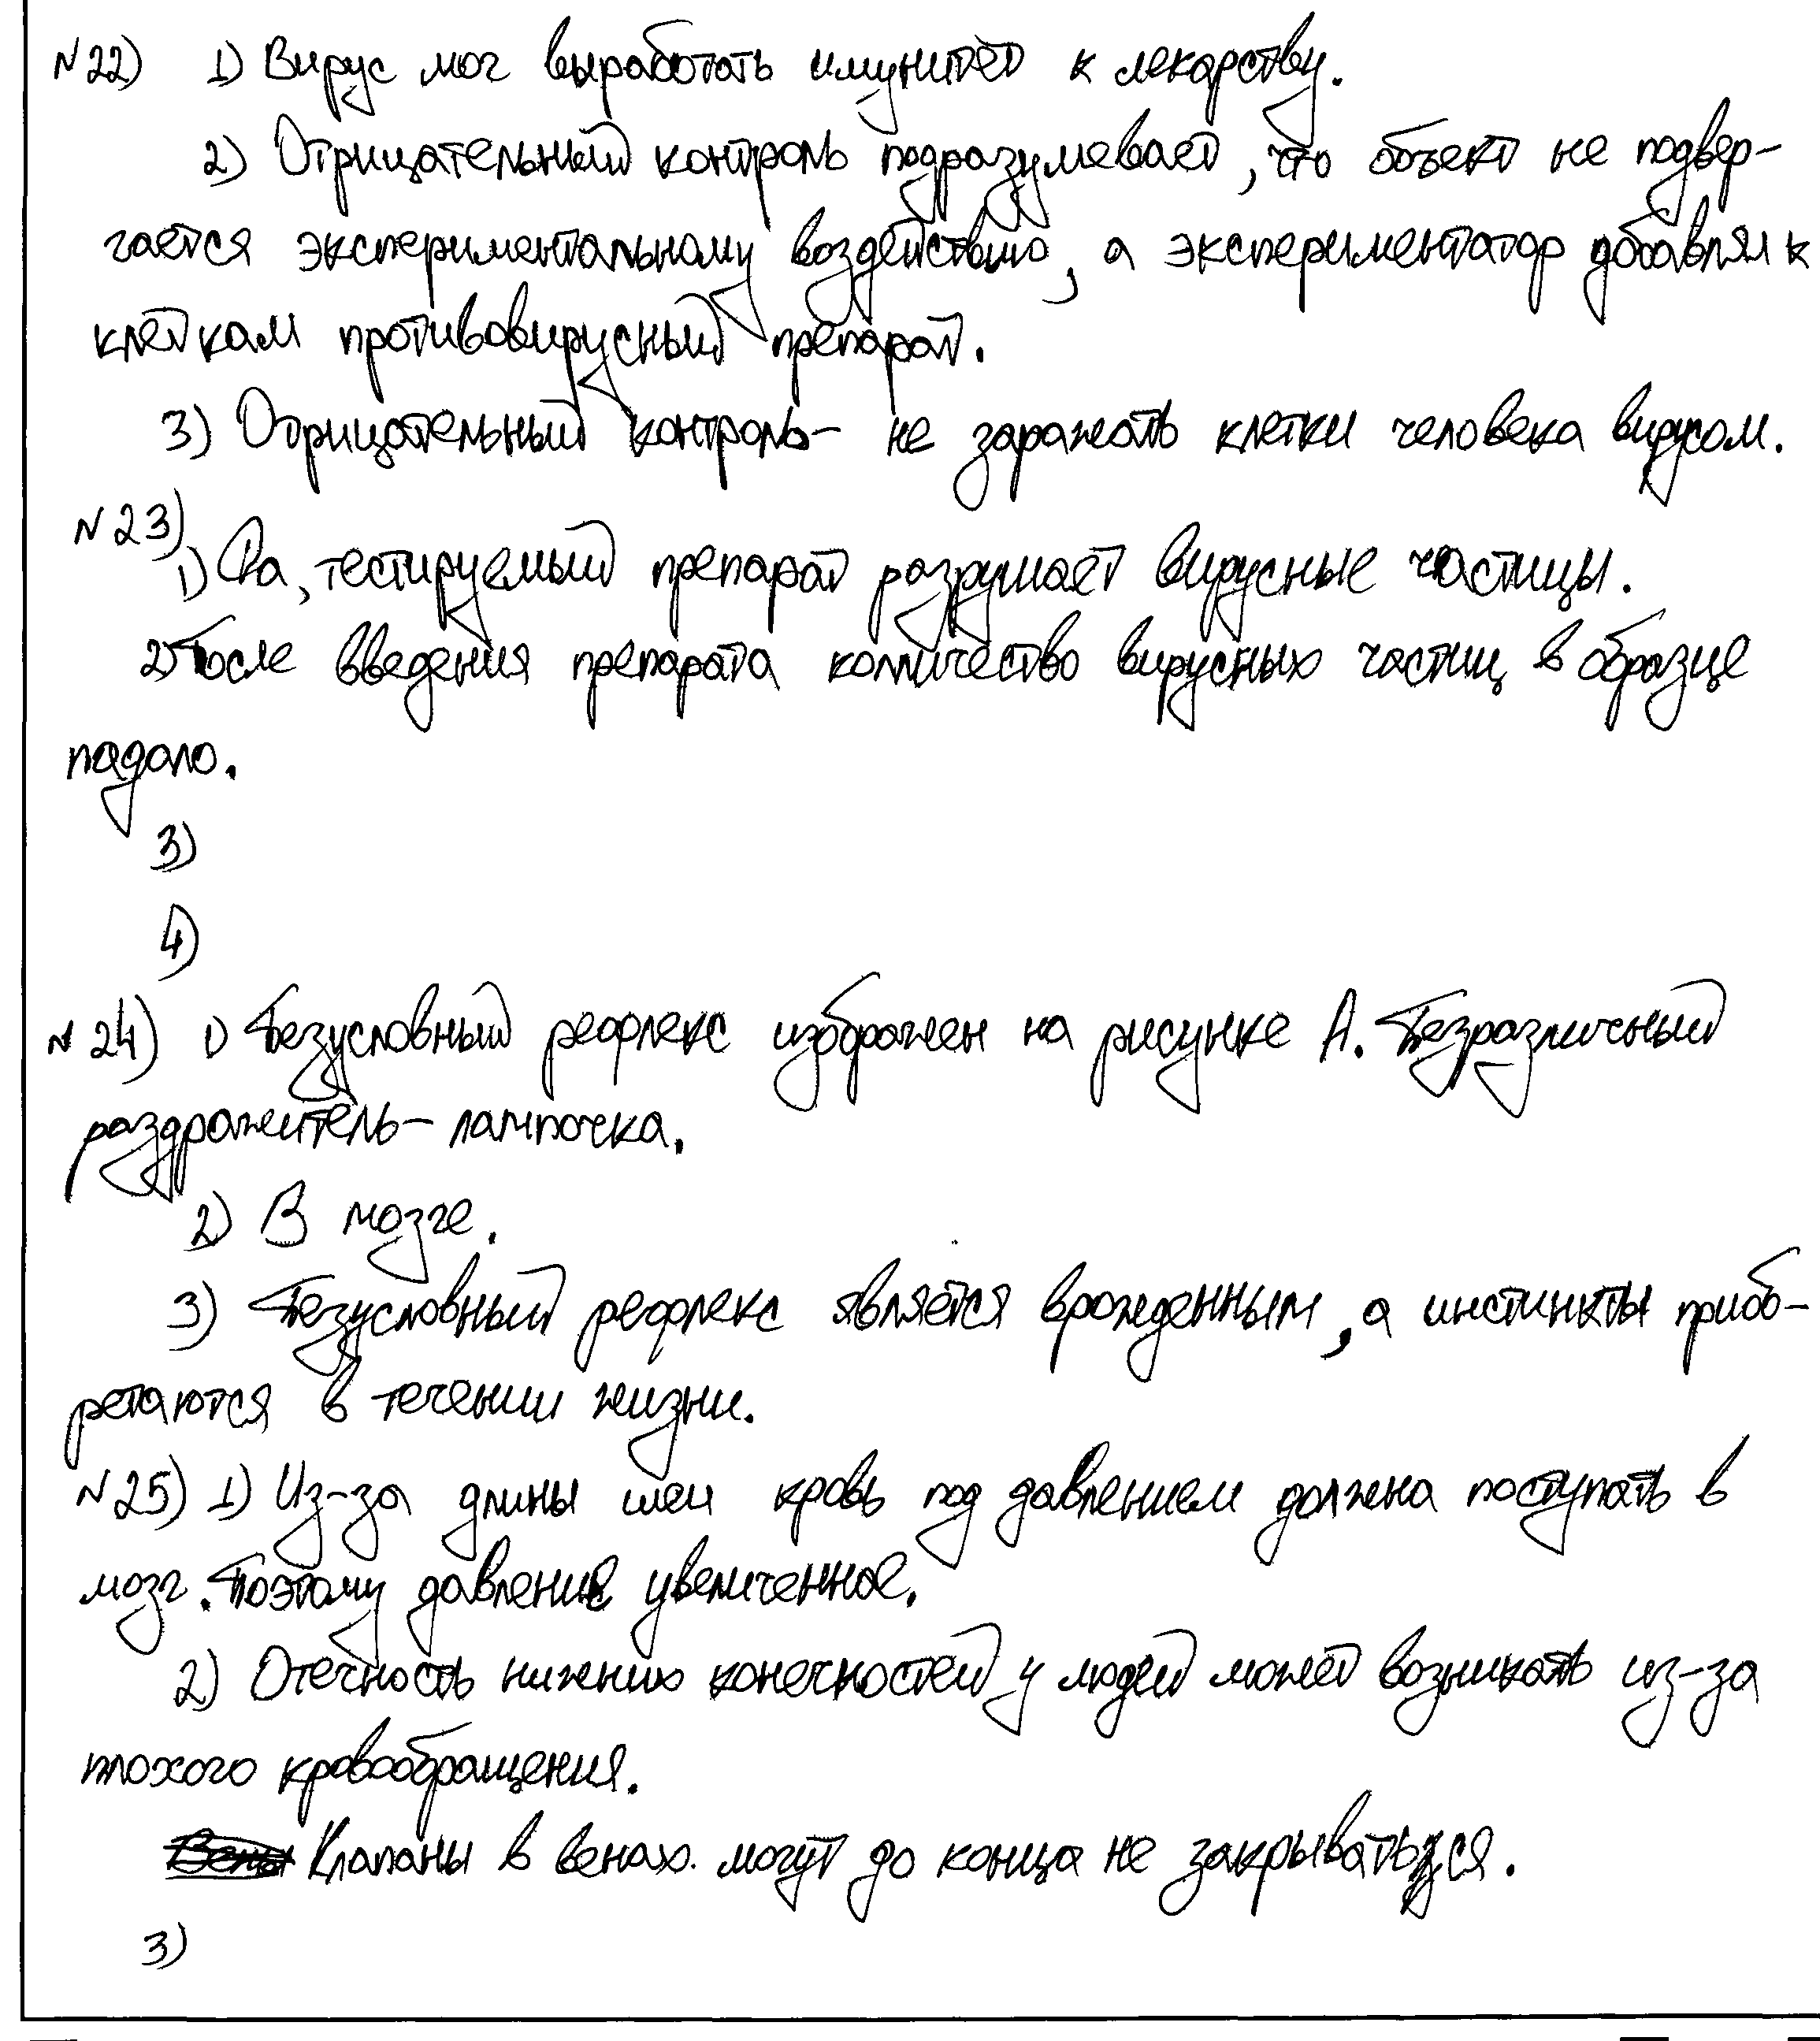 №22) 1) Вирус мог выработать имунитет к лекарству.
2) Отрицательный контроль подразумевает, что объект не подвер-
гается экспериментальному воздействию, а экспериментатор добавлял к
клеткам противовирусный препарат.
3) Отрицательный контроль- не заражать клетки человека вирусом.
№23)
1) Да, тестируемый препарат разрушает вирусные частицы.
2) После введения препарата колличество вирусных частиц в образце
падало.
3)
4)
№24) 1) Безусловный рефлекс изображен на рисунке А. Безразличный
раздражитель- лампочка.
2) В мозге.
3) Безусловный рефлекс является врожденным, а инстинкты приоб-
ретаются в течении жизни.
№25) 1) Из-за длины шеи кровь под давлением должна поступать в
мозг. Поэтому давление увеличенное.
2) Отечность нижних конечностей у людей может возникать из-за
плохого кровообращения.
Клапаны в венах могут до конца не закрываться.
3)